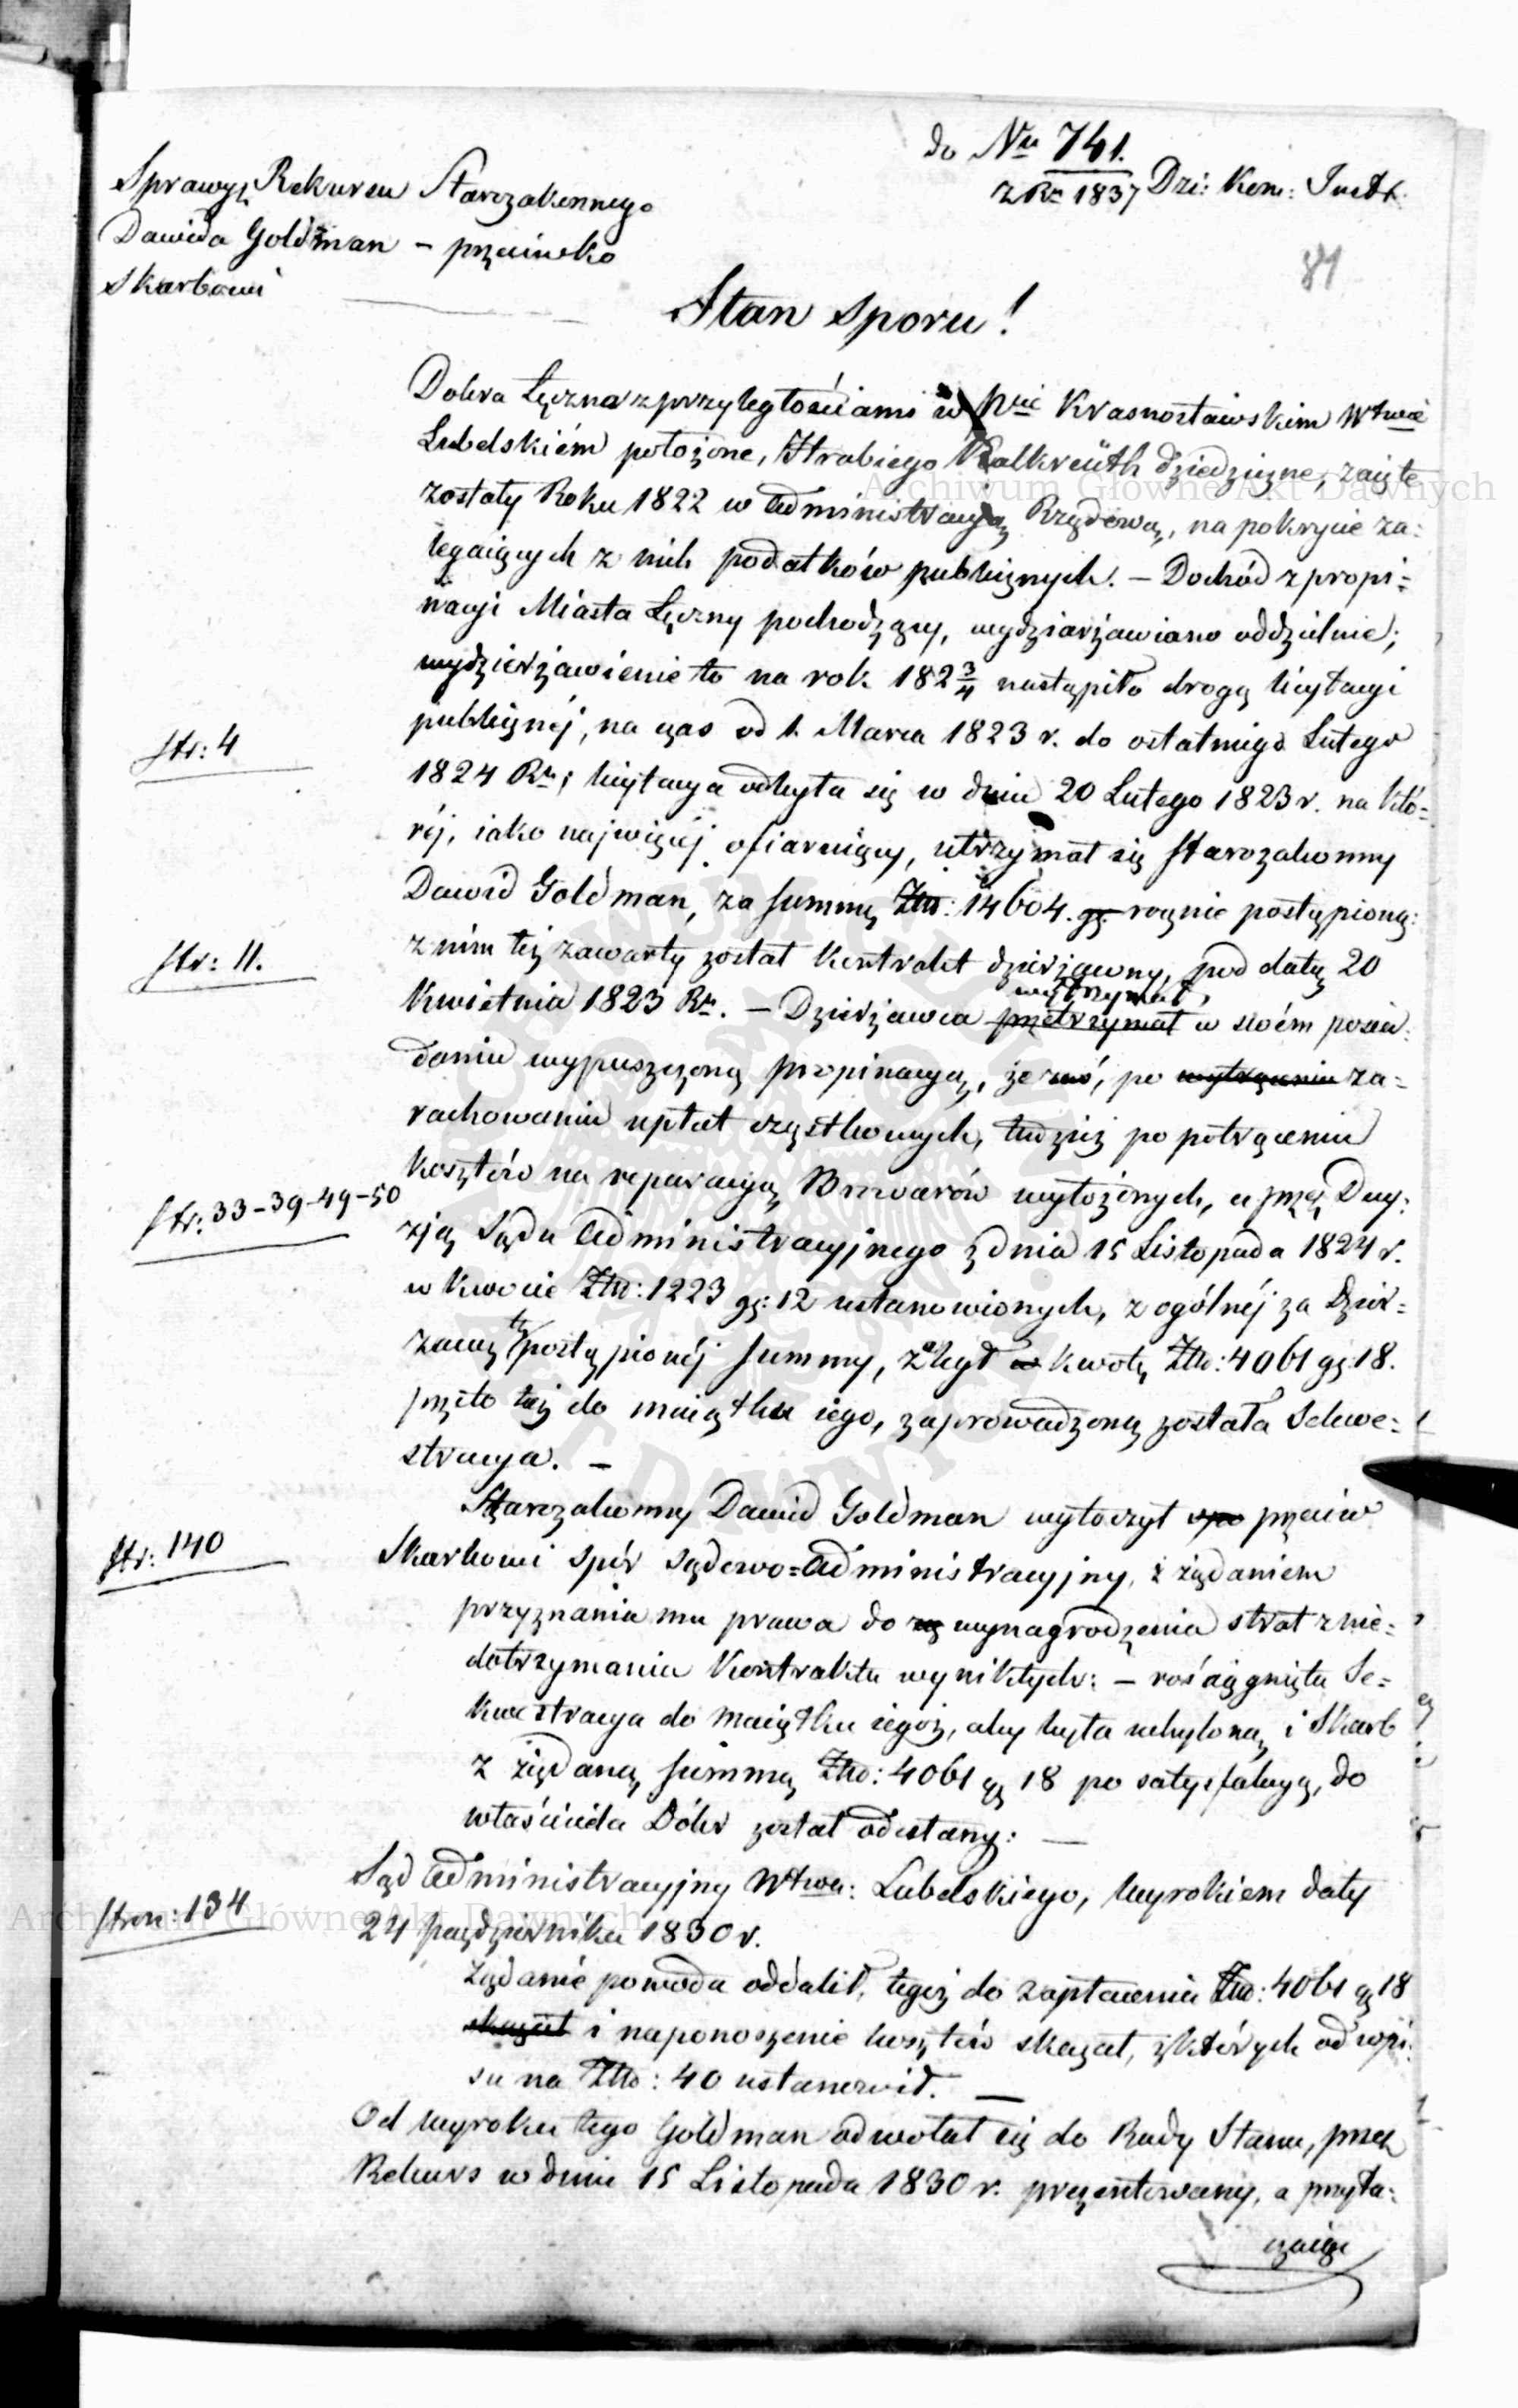 do Nru 741.
z Ru 1837 Dzi: Kom: Instr.
Sprawy z Rekursu Starozakonnego
Dawida Goldman – przeciwko
Skarbowi
81
Stan sporu!
Dobra Łęczna z przyległościami w Pcie Krasnostawskim Wtwie
Lubelskiém położone, Hrabiego Kalkreüth dziedziczne, zaięte
zostały Roku 1822 w Administracyą Rządową, na pokrycie za=
legaiących z nich podatków publicznych. – Dochód z propi=
nacyi Miasta Łęczny pochodzący, wydzierżawiano oddzielnie;
wydzierżawienie to na rok 182 3/4 nastąpiło drogą licytacyi
publicznéj, na czas od 1. Marca 1823 r. do ostatniego Lutego
str: 4
1824 Ru; licytacya odbyła się w dniu 20 Lutego 1823 r. na któ=
réj, iako najwięcéj ofiaruiący, utrzymał się starozakonny
Dawid Goldman, za summę Złp: 14604. gr. rocznie postąpioną:
str: 11.
z nim też zawarty został kontrakt dzierżawny, pod datą 20
Kwietnia 1823 Ru. – Dzierżawca przetrzymał wytrzymał, w swém posia=
daniu wypuszczoną propinacyą, że zaś, po wytrąceniu za=
rachowaniu upłat cząstkowych, tudzież po potrąceniu
kosztów na reparacyą Browarów wyłożonych, a przez Decy=
str: 33-39-49-50
zją Sądu Administracyjnego z dnia 15 Listopada 1824 r.
w kwocie Złp: 1223 gr: 12 ustanowionych, z ogólnéj za Dzier=
żawę tę postąpionéj summy, zaległ w kwotę Złp: 4061 gr: 18.
przeto też do maiątku iego, zaprowadzoną została Sekwe=
stracya. –
Starozakonny Dawid Goldman wytoczył spo przeciw
str: 140
Skarbowi spór sądowo=Administracyjny, z żądaniem
przyznania mu prawa do wynagrodzenia strat z nie=
dotrzymania kontraktu wynikłych: – rościągnięta Se=
kwestracya do maiątku iegoż, aby była uchyloną, i Skarb
z żądaną summą Złp: 4061 gr 18 po satysfakcyą, do
właściciela Dóbr został odesłany: —
Sąd Administracyjny Wtwa: Lubelskiego, wyrokiem daty
stron: 134
24 października 1830 r.
żądanie powoda oddalił, tegoż do zapłacenia Złp: 4061 gr 18
skazał i na ponoszenie kosztów skazał, z których od wpi=
su na Złp: 40 ustanowił. —
Od wyroku tego Goldman odwołał się do Rady Stanu, przez
Rekurs w dniu 15 Listopada 1830 r. prezentowany, a przyta=
czaiąc
Archiwum Główne Akt Dawnych
Archiwum Główne Akt Dawnych